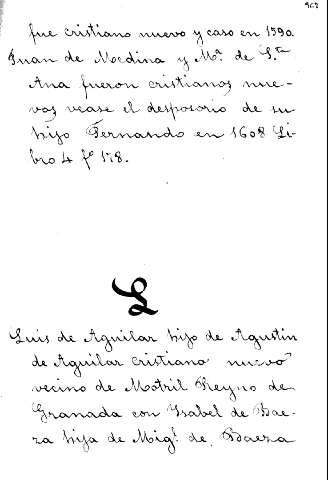 fue cristiano nuevo y caso en 1590
Juan de Medina y Mª. de S.ta
Ana fueron cristianos nue-
vos vease el desposorio de su
hijo Fernando en 1608 Li-
bro 4 fº 178.
L
Luis de Aguilar hijo de Agustin
de Aguilar cristiano nuevo
vecino de Motril Reyno de
Granada con Ysabel de Bae-
za hija de Migl. de Baeza